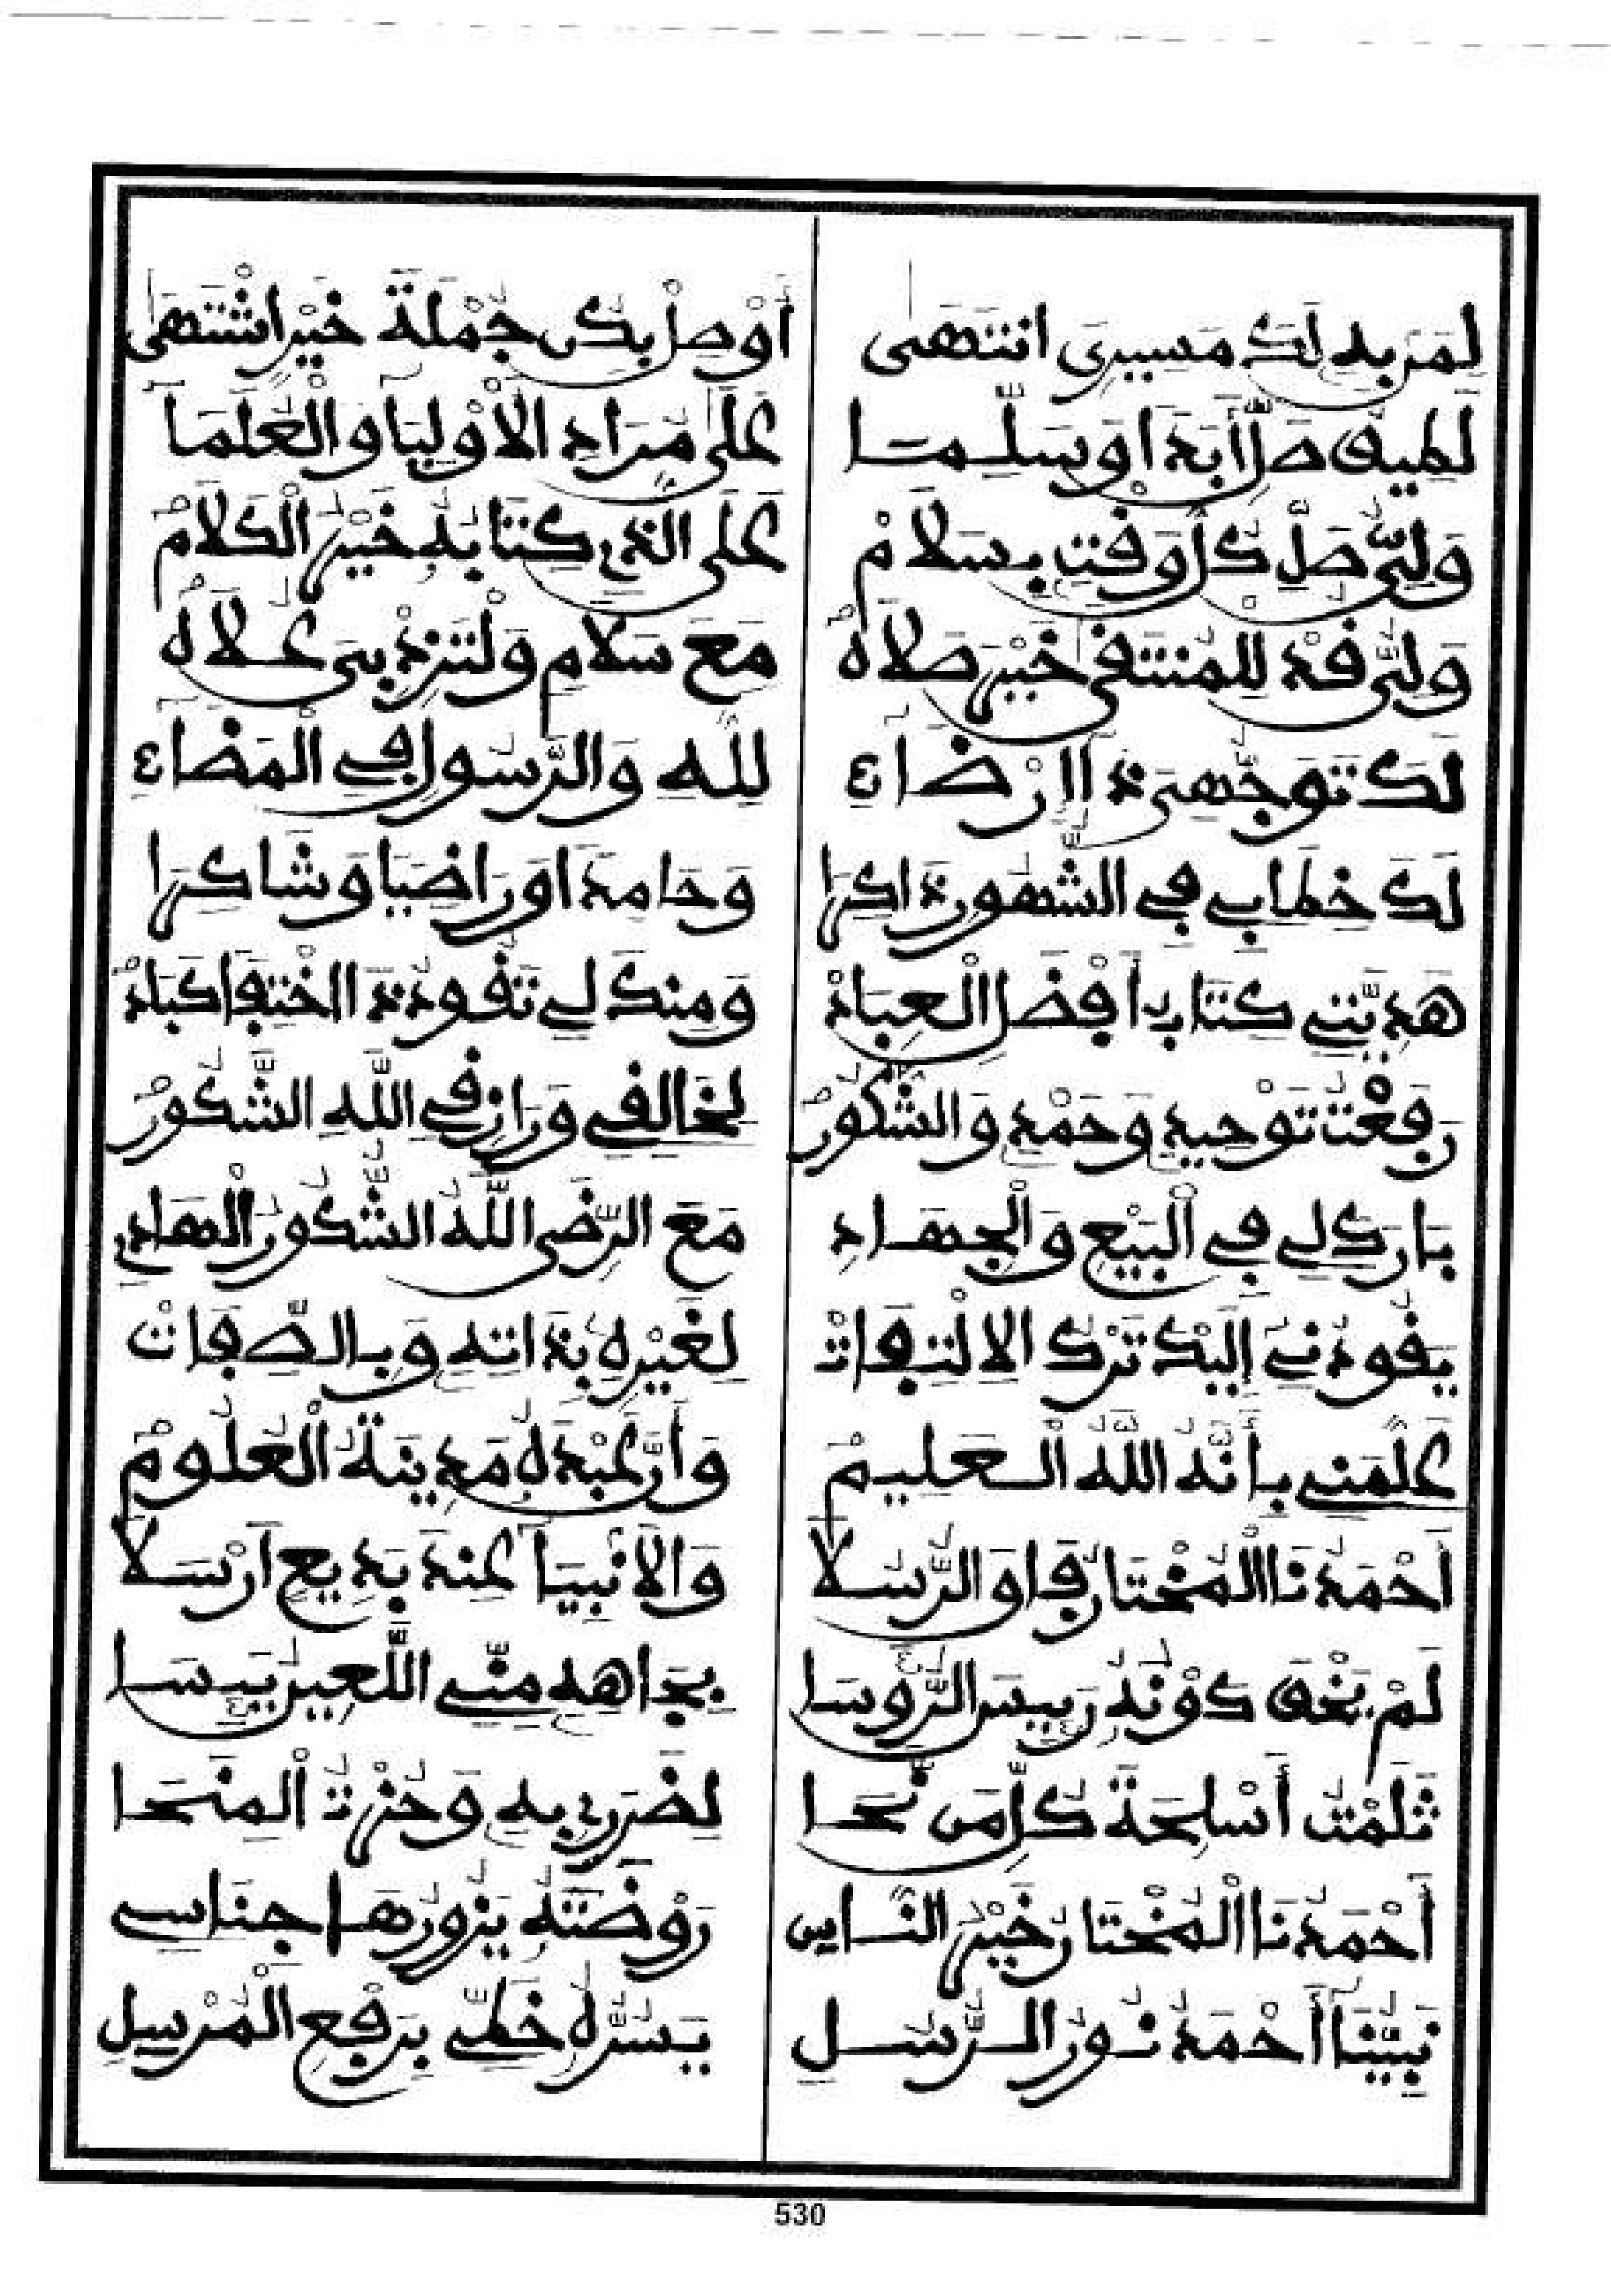 لِمَن بِهِ لَكَ مَسِيرِي انْتَهَى أَوْصِلْ بِكُنْ جُمْلَةَ خَيْرٍ اشْتَهَى
لَطِيفُ صَلِّ أَبَدًا وَسَلِّمَا عَلَى مُرَادِ الْأَوْلِيَا وَالْعُلَمَا
وَلِيُّ صَلِّ كُلَّ وَقْتٍ بِسَلَامْ عَلَى الَّذِي كِتَابُهُ خَيْرُ الْكَلَامْ
وَلِيُّ قُدْ لِلْمُنْتَقَى خَيْرَ صَلَاهْ مَعَ سَلَامٍ وَلْتَزِدْ بِي عُلَاهْ
لَكَ تَوَجُّهِي بِذَا الْإِرْضَاءِ لِلَّهِ وَالرَّسُولِ فِي الْمَضَاءِ
لَكَ خِطَابِي فِي الشُّهُورِ ذَاكِرَا وَحَامِدًا وَرَاضِيًا وَشَاكِرَا
هَدَيْتَنِي كِتَابَ أَفْضَلِ الْعِبَادْ وَمِنْكَ لِي تَقُودُ ذَا اخْتِفَا كَبَادْ
رَفَعْتُ تَوْحِيدِي وَحَمْدِي وَالشُّكُورْ لِخَالِقِي وَرَازِقِي اللَّهِ الشَّكُورْ
بَارَكَ لِي فِي الْبَيْعِ وَالْجِهَادِ مَعَ الرِّضَى اللَّهُ الشَّكُورُ الْهَادِي
يَقُودُنِي إِلَيْكَ تَرْكُ الِالْتِفَاتْ لِغَيْرِهِ بِذَاتِهِ وَبِالصِّفَاتْ
عَلَّمَنِي بِأَنَّهُ اللَّهُ الْعَلِيمْ وَأَنَّ عَبْدَهُ مَدِينَةُ الْعُلُومْ
أَحْمَدُنَا الْمُخْتَارُ فَاقَ الرُّسُلَا وَالْأَنْبِيَا عِنْدَ بَدِيعٍ أَرْسَلَا
لَمْ يَخْفَ كَوْنُهُ رَئِيسَ الرُّؤَسَا بِجَاهِهِ مِنِّي اللَّعِينُ يَئِسَا
ثَلَمْتُ أَسْلِحَةَ كُلِّ مَنْ نَحَا لِضَرَرِي بِهِ وَحُزْتُ الْمِنَحَا
أَحْمَدُنَا الْمُخْتَارُ خَيْرُ النَّاسِ رَوْضَتُهُ يَزُورُهَا جِنَاسِي
نَبِيُّنَا أَحْمَدُ نُورُ الرُّسُلِ يَسُرُّهُ خَطِّي بِرَفْعِ الْمُرْسِلِ
530